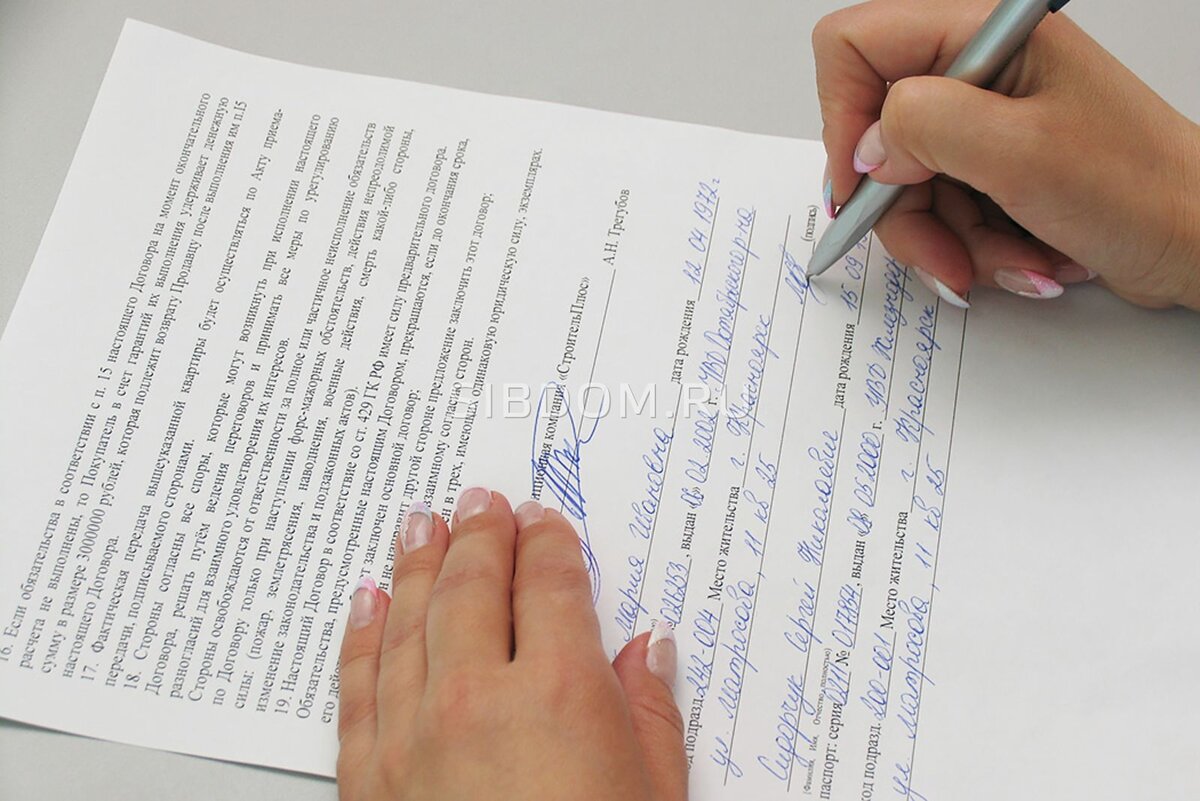 16. Если обязательства в соответствии с п. 15 настоящего Договора на момент окончательного
расчета не выполнены, то Покупатель в счет гарантий их выполнения удерживает денежную
сумму в размере 3000000 рублей, которая подлежит возврату Продавцу после выполнения им п.15
настоящего Договора.
17. Фактическая передача вышеуказанной квартиры будет осуществляться по Акту приема-
передачи, подписываемого сторонами.
18. Стороны согласны все споры, которые могут возникнуть при исполнении настоящего
Договора, решать путём ведения переговоров и принимать все меры по урегулированию
разногласий для взаимного удовлетворения их интересов.
Стороны освобождаются от ответственности за полное или частичное неисполнение обязательств
по Договору только при наступлении форс-мажорных обстоятельств, действия непреодолимой
силы: (пожар, землетрясения, наводнения, военные действия, смерть какой-либо стороны,
изменение законодательства и подзаконных актов).
19. Настоящий Договор в соответствие со ст. 429 ГК РФ имеет силу предварительного договора.
Обязательства, предусмотренные настоящим Договором, прекращаются, если до окончания срока,
его дей заключен основной договор;
н не направит другой стороне предложение заключить этот договор;
взаимному согласию сторон.
н в трех, имеющих одинаковую юридическую силу, экземплярах.
компания «СтроительПлюс»
А.Н. Трегубов
SIBDOM.RU
Мария Ивановна дата рождения 12 04 1972 г
выдан 02 г. УВО Октябрьского р-на
од подразд. 242-004 Место жительства г. Красноярск
ул. Матросова, 11 кв 25
(подпись)
Сидорчук Сергей Николаевич дата рождения 15 09
(Фамилия, Имя, Отчество полностью)
паспорт: серия № 017884, выдан 08 05 2000 г. УВО
код подразд. 200-001 Место жительства г. Красноярск
ул. Матросова, 11 кв 25